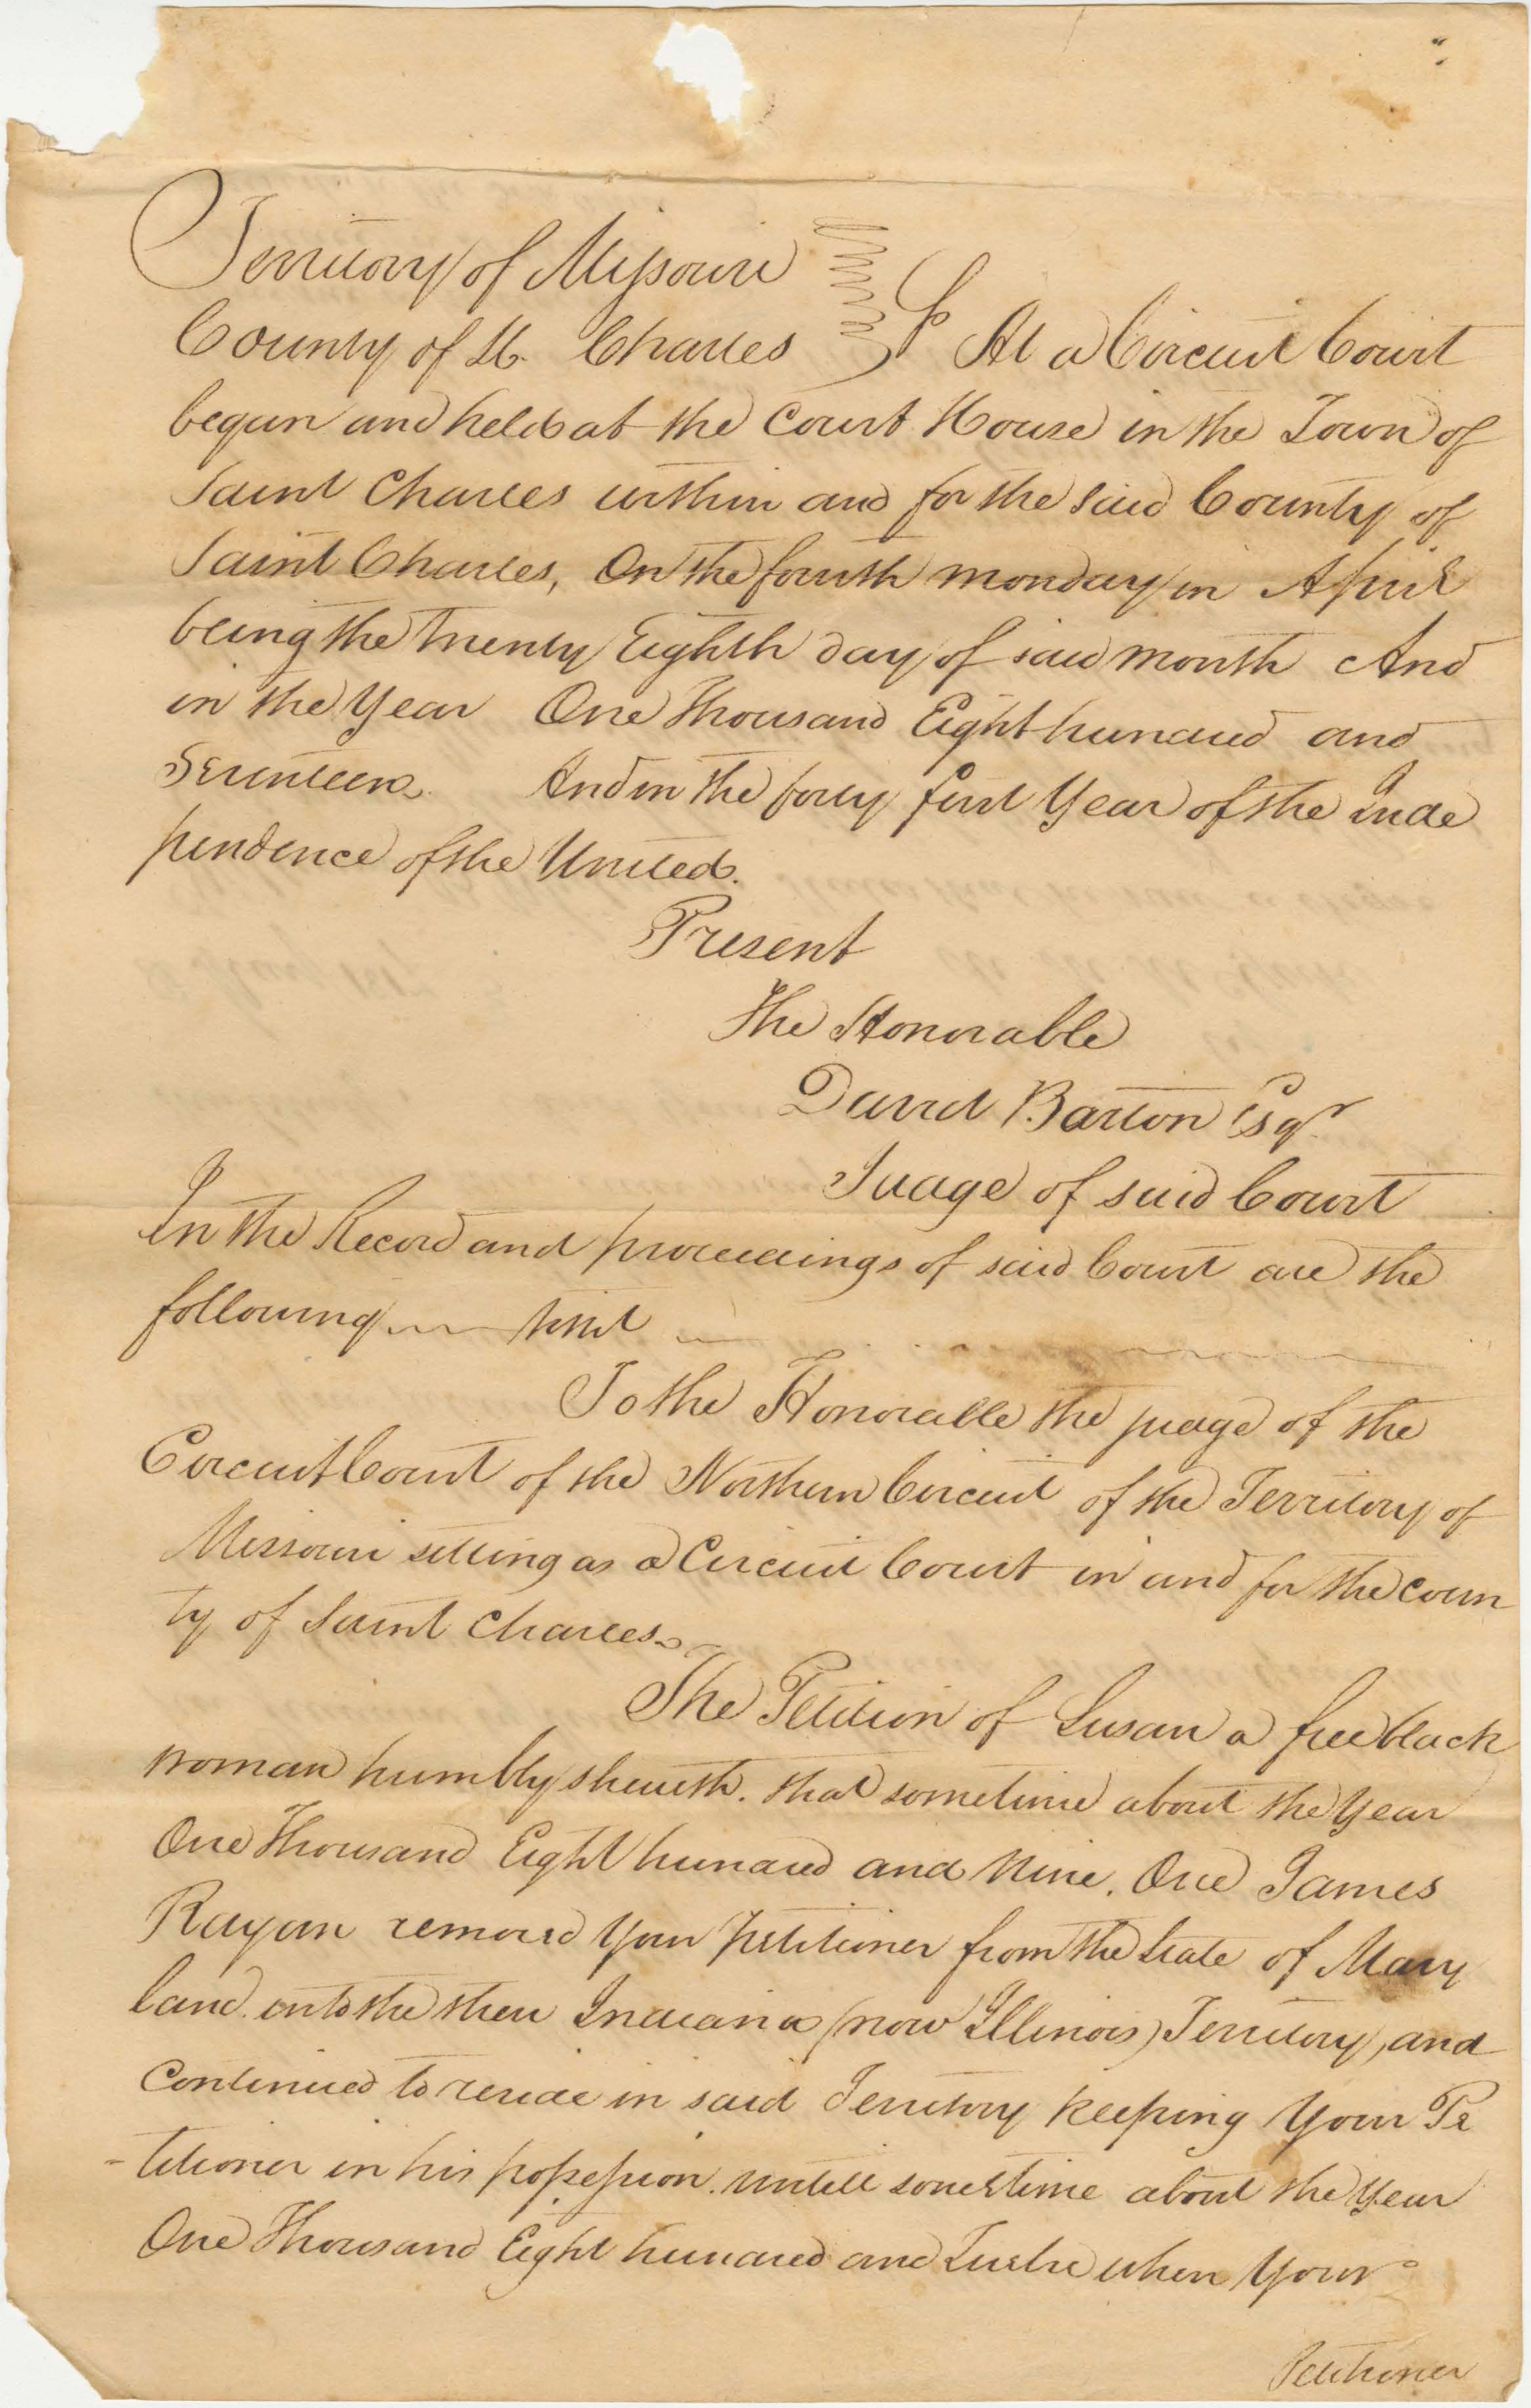 Territory of Missouri
County of St. Charles } Ss At a Circuit Court
begun and held at the Court House in the Town of
Saint Charles within and for the said County of
Saint Charles, On the fourth monday in April
being the Twenty Eighth day of said month And
in the Year One Thousand Eight hundred and
Seventeen. And in the forty first Year of the Inde
pendence of the United.
Present
The Honorable
David Barton Esqr.
Judge of said Court
In the Record and proceedings of said Court are the
following towit
To the Honorable the judge of the
Circuit Court of the Northern Circuit of the Territory of
Missouri sitting as a Circuit Court in and for the coun
ty of Saint Charles.
The Petition of Susan a free black
woman humbly sheweth. that sometime about the Year
One Thousand Eight hundred and Nine. One James
Rayan removed Your Petitioner from the State of Mary
land. into the then Indiana (now Illinois) Territory, and
Continued to reside in said Territory keeping Your Pe
-titioner in his possession. untill sometime about the Year
One Thousand Eight hundred and Twelve when Your
Petitioner